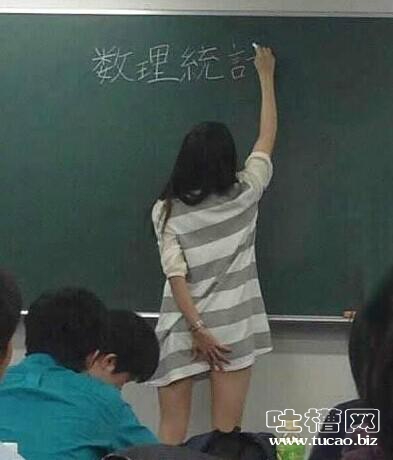 数理統計
吐槽网
www.tucao.biz